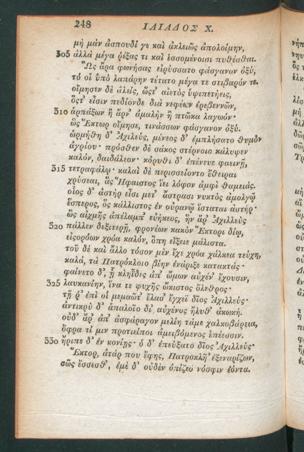 248 ΙΛΙΑΔΟΣ Χ.
μὴ μὰν ἀσπουδί γε καὶ ἀκλειῶς ἀπολοίμην,
305 ἀλλὰ μέγα ῥέξας τι καὶ ἐσσομένοισι πυθέσθαι.
Ὣς ἄρα φωνήσας εἰρύσσατο φάσγανον ὀξύ,
τό οἱ ὑπὸ λαπάρην τέτατο μέγα τε στιβαρόν τε.
οἴμησεν δὲ ἀλείς, ὥςτ' αἰετὸς ὑψιπετήεις,
ὅςτ' εἶσιν πεδίονδε διὰ νεφέων ἐρεβεννῶν,
310 ἁρπάξων ἢ ἄρν' ἀμαλὴν ἢ πτῶκα λαγωόν·
ὣς Ἕκτωρ οἴμησε, τινάσσων φάσγανον ὀξύ.
ὡρμήθη δ' Ἀχιλεύς, μένεος δ' ἐμπλήσατο θυμὸν
ἀγρίου· πρόσθεν δὲ σάκος στέρνοιο κάλυψεν
καλόν, δαιδάλεον· κόρυθι δ' ἐπένευε φαεινῇ,
315 τετραφάλῳ· καλαὶ δὲ περισσείοντο ἔθειραι
χρύσεαι, ἃς Ἥφαιστος ἵει λόφον ἀμφὶ θαμειάς.
οἷος δ' ἀστὴρ εἶσι μετ' ἄστρασι νυκτὸς ἀμολγῷ
ἕσπερος, ὃς κάλλιστος ἐν οὐρανῷ ἵσταται ἀστήρ·
ὣς αἰχμῆς ἀπέλαμπ' εὐήκεος, ἣν ἄρ' Ἀχιλλεὺς
320 πάλλεν δεξιτερῇ, φρονέων κακὸν Ἕκτορι δίῳ,
εἰςορόων χρόα καλόν, ὅπη εἴξειε μάλιστα.
τοῦ δὲ καὶ ἄλλο τόσον μὲν ἔχε χρόα χάλκεα τεύχη,
καλά, τὰ Πατρόκλοιο βίην ἐνάριξε κατακτάς·
φαίνετο δ', ᾗ κληῖδες ἀπ' ὤμων αὐχέν' ἔχουσιν,
325 λαυκανίην, ἵνα τε ψυχῆς ὤκιστος ὄλεθρος·
τῇ ῥ' ἐπὶ οἷ μεμαῶτ' ἔλασ' ἔγχεϊ δῖος Ἀχιλλεύς·
ἀντικρὺ δ' ἁπαλοῖο δι' αὐχένος ἤλυθ' ἀκωκή.
οὐδ' ἄρ' ἀπ' ἀσφάραγον μελίη τάμε χαλκοβάρεια,
ὄφρα τί μιν προτιείποι ἀμειβόμενος ἐπέεσσιν.
330 ἤριπε δ' ἐν κονίῃς· ὁ δ' ἐπεύξατο δῖος Ἀχιλλεύς·
Ἕκτορ, ἀτάρ που ἔφης, Πατροκλῆ' ἐξεναρίζων,
σῶς ἔσσεσθ', ἐμὲ δ' οὐδὲν ὀπίζεο νόσφιν ἐόντα.